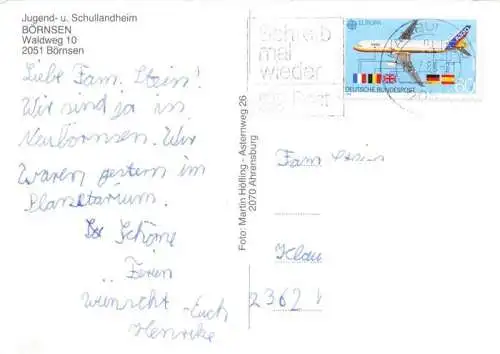 Jugend- u. Schullandheim
BÖRNSEN
Waldweg 10
2051 Börnsen
Liebe Fam. Stein!
Wir sind ja in
Neubörnsen. Wir
waren gestern im
Planetarium.
Schöne
Ferien
wünscht Euch
Henrike
Foto: Martin Höfling - Asternweg 26
2070 Ahrensburg
Schreib
mal
wieder
die Post
EUROPA
80
DEUTSCHE BUNDESPOST
Fam. Stein
Klau
2362